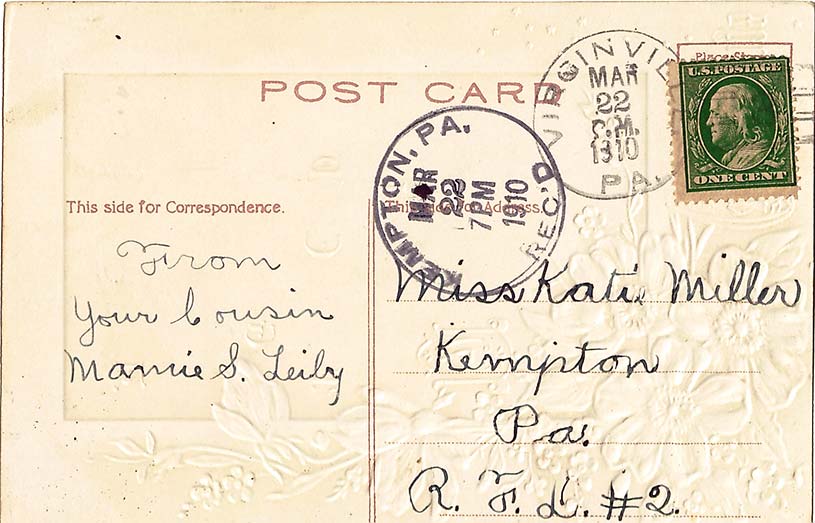 POST CARD
VIRGINVIL
MAR
22
P.M.
1910
PA.
U.S. POSTAGE
ONE CENT
KEMPTON, PA.
MAR
22
7PM
1910
REC'D
This side for Correspondence.
This side for Address.
From
Your Cousin
Mamie S. Leiby
Miss Katie Miller
Kempton
Pa.
R. F. D. #2.